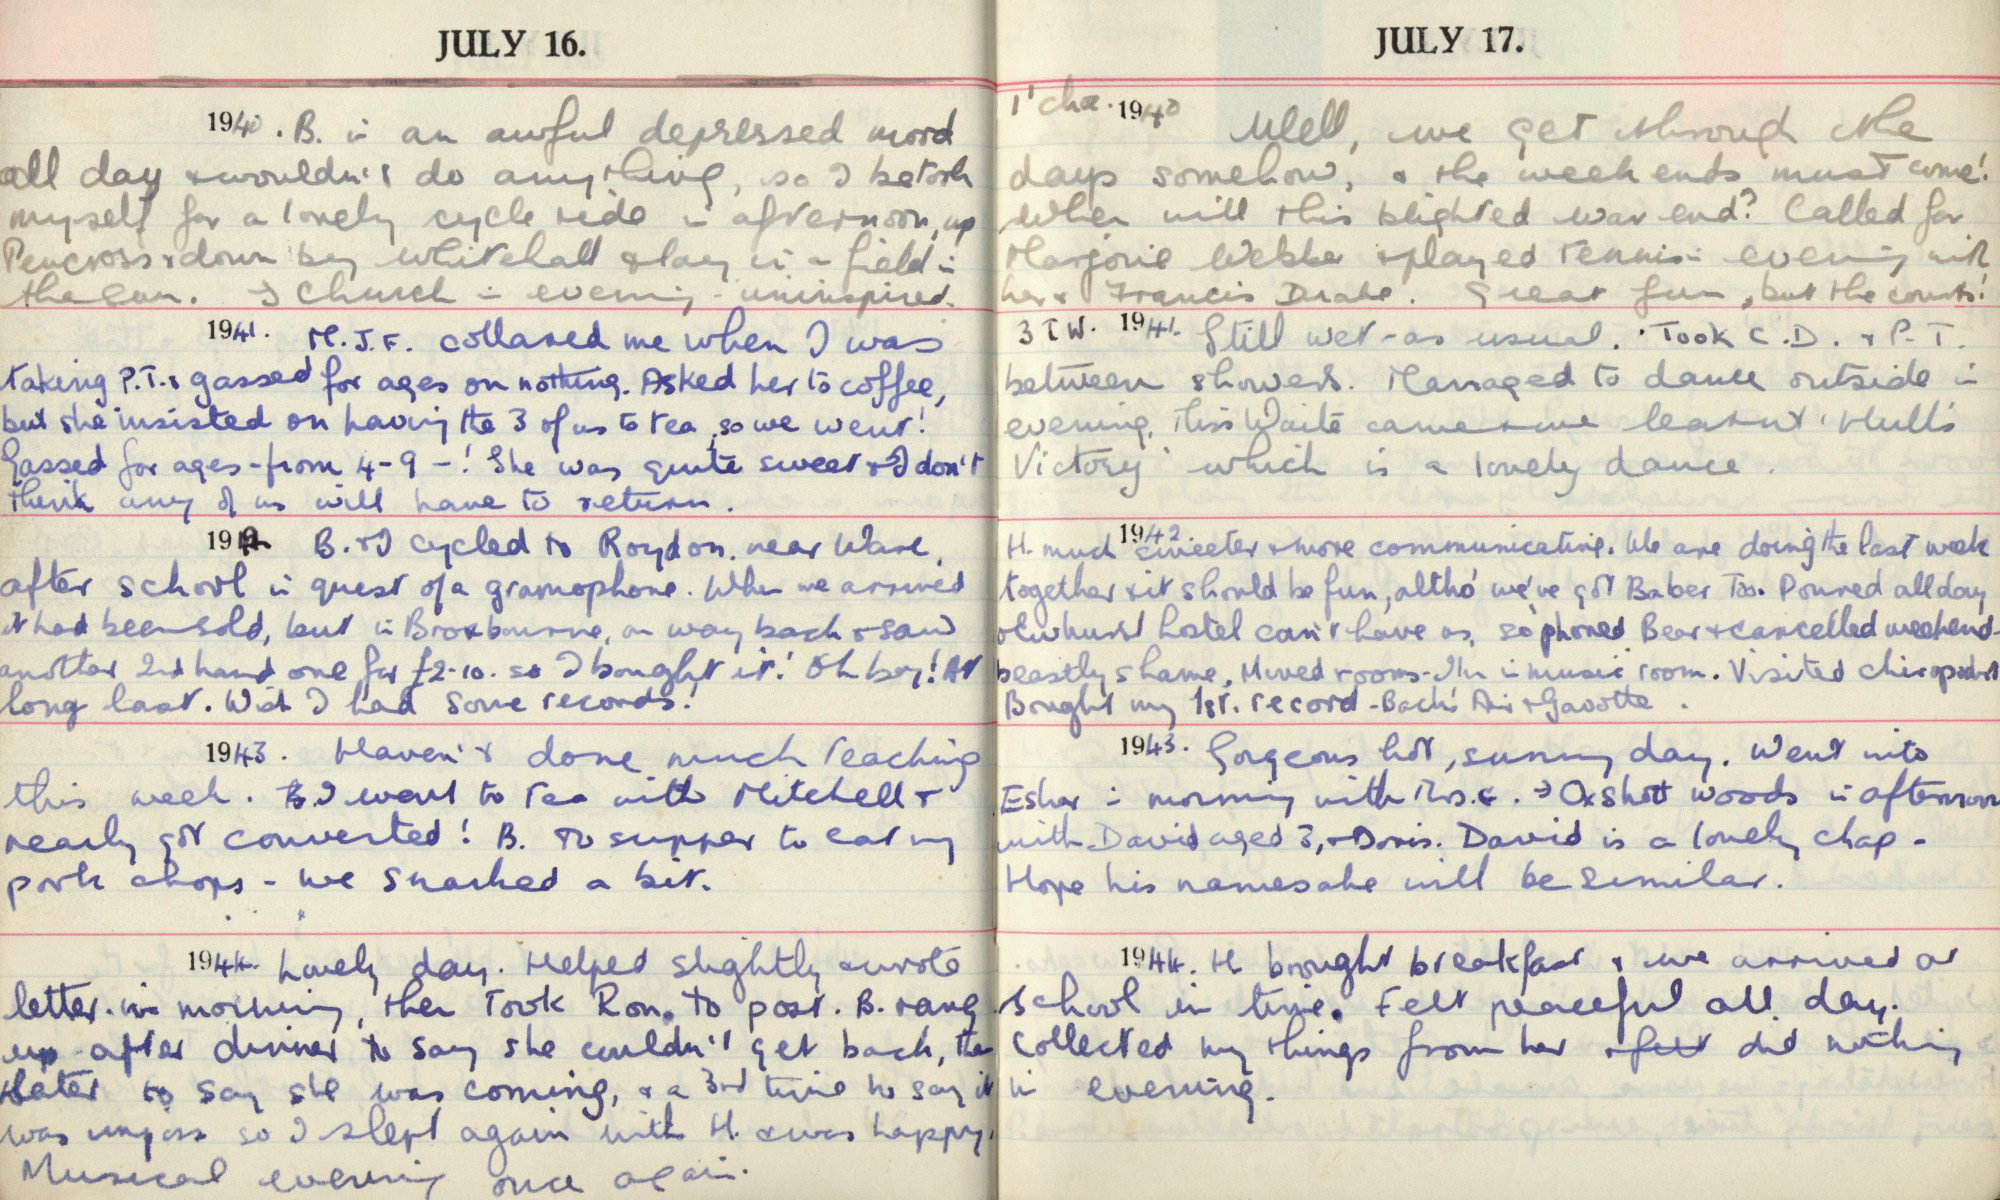 JULY 16.
1940. B. is an awful depressed mood
all day & wouldn't do anything, so I betook
myself for a lonely cycle ride in afternoon, up
Pencross & down by Whitehall & lay in a field in
the sun. → Church in evening - uninspired.
1941. M.J.F. collared me when I was
taking P.T. & gassed for ages on nothing. Asked her to coffee,
but she insisted on having the 3 of us to tea, so we went!
Gassed for ages - from 4-9 -! She was quite sweet & I don't
think any of us will have to return.
1942 B. & I cycled to Roydon, near Ware,
after school in quest of a gramophone. When we arrived
it had been sold, but in Broxbourne, on way back & saw
another 2nd hand one for £2-10. so I bought it! Oh boy! At
long last. Wish I had some records!
1943. Haven't done much teaching
this week. B. I went to tea with Mitchell &
nearly got converted! B. to supper to eat my
pork chops - we snacked a bit.
1944. Lovely day. Helped slightly & wrote
letter in morning, then took Ron. to post. B. rang
up after dinner to say she couldn't get back, then
later to say she was coming, & a 3rd time to say it
was so I slept again with H. & was happy.
Musical evening once again.
JULY 17.
1940 Well, we get through the
days somehow, & the week ends must come!
When will this blighted war end? Called for
Marjorie Webber & played tennis in evening with
her & Francis Drake. Great fun, but the courts!
1941. Still wet - as usual. Took C.D. & P.T.
between showers. Managed to dance outside in
evening. Miss Waite came & we learnt 'Hull's
Victory' which is a lovely dance.
1942 H. much sweeter & more communicative. We are doing the last week
together & it should be fun, altho' we've got Baber too. Poured all day
hostel can't have us, so phoned Bear & cancelled weekend -
beastly shame. Moved rooms - I'm in music room. Visited chiropodist
Bought my 1st. record - Bach's Air & Gavotte.
1943. Gorgeous hot, sunny day. Went into
Esher in morning with Mrs. E. → Oxshott woods in afternoon
with David, aged 3, & Doris. David is a lovely chap -
Hope his namesake will be similar.
1944. H. brought breakfast & we arrived at
school in time. Felt peaceful all day.
Collected my things from her & felt did nothing
in evening.